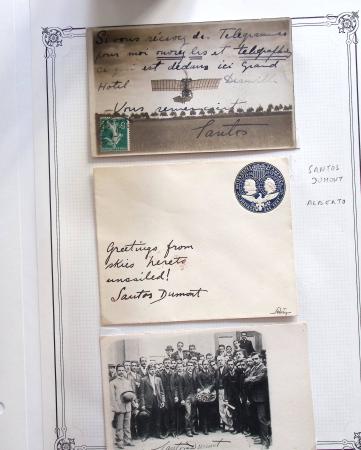 Si vous recevez des Telegrammes
pour moi ouvrez les et telegraphiez
ce qui est dedans ici Grand
Hotel Deauville
Vous remerciant
Santos
5
Greetings from
skies hereto
unsailed!
Santos Dumont
SANTOS
DUMONT
ALBERTO
Santos Dumont